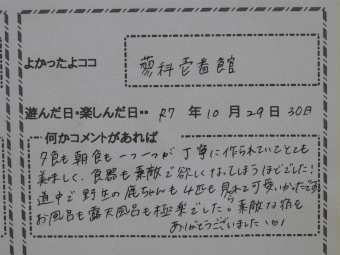 よかったよココ 蓼科壱番館
遊んだ日・楽しんだ日・・ R7 年 10 月 29 日 30日
何かコメントがあれば
夕食も朝食も一つ一つが丁寧に作られていてとても
美味しく、食器も素敵で欲しくなってしまうほどでした!
道中で野生の鹿ちゃんも4匹も見れて可愛いかったです
お風呂も露天風呂も極楽でした。素敵な宿を
ありがとうございました